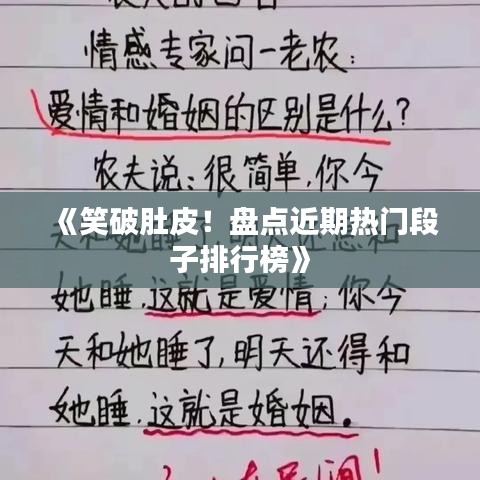 情感专家问一老农:
爱情和婚姻的区别是什么?
农夫说:很简单,你今
《笑破肚皮！盘点近期热门段
子排行榜》
她睡,这就是爱情;你今
天和她睡了,明天还得和
她睡,这就是婚姻。